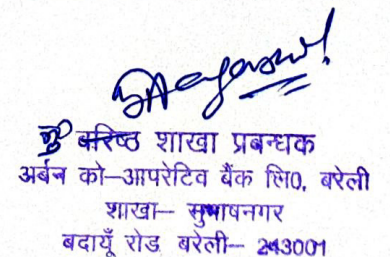 वरिष्ठ शाखा प्रबन्धक
अर्बन को–आपरेटिव बैंक लि0, बरेली
शाखा– सुभाषनगर
बदायूँ रोड बरेली– 243001